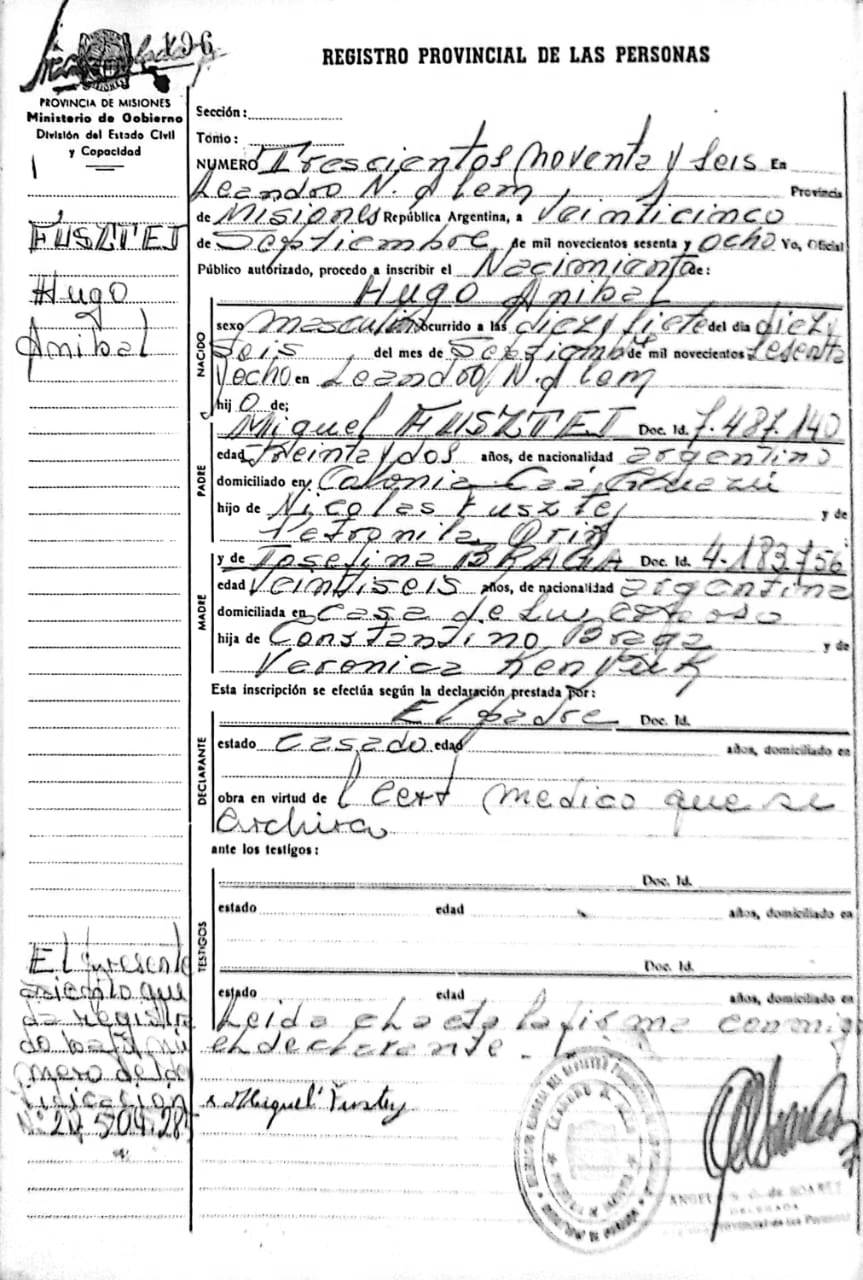 396
REGISTRO PROVINCIAL DE LAS PERSONAS
PROVINCIA DE MISIONES
Ministerio de Gobierno
División del Estado Civil
y Capacidad
FUSZTEJ
Hugo
Anibal
Sección:
Tomo:
NUMERO Trescientos Noventa y seis En
Leandro N. Alem Provincia
de Misiones República Argentina, a Veinticinco
de Septiembre de mil novecientos sesenta y ocho Yo, Oficial
Público autorizado, procedo a inscribir el Nacimiento de:
Hugo Anibal
NACIDO
sexo masculino ocurrido a las diez y siete del día diez y
seis del mes de Septiembre de mil novecientos sesenta
y ocho en Leandro N. Alem
hijo de;
PADRE
Miguel FUSZTEJ Doc. Id. 7.487.140
edad treinta y dos años, de nacionalidad argentino
domiciliado en Colonia Caá Guazú
hijo de Nicolas Fusztej y de
Petronila
MADRE
y de Josefina BRAGA Doc. Id. 4.183.756
edad Veintiseis años, de nacionalidad argentina
domiciliada en casa de su esposo
hija de Constantino Braga y de
Veronica
Esta inscripción se efectúa según la declaración prestada por:
DECLARANTE
El padre Doc. Id.
estado casado edad años, domiciliado en
obra en virtud de l cert medico que se
archiva
ante los testigos:
TESTIGOS
Doc. Id.
estado edad años, domiciliado en
Doc. Id.
estado edad años, domiciliado en
Leida el acta la firma conmigo
el declarante.
El presente
asiento que
da registra
do bajo nu
mero de Iden
tificación
Nº 20.504.28
Miguel Fusztej
ANGEL S. G. de SUAREZ
DELEGADA
Provincial de las Personas